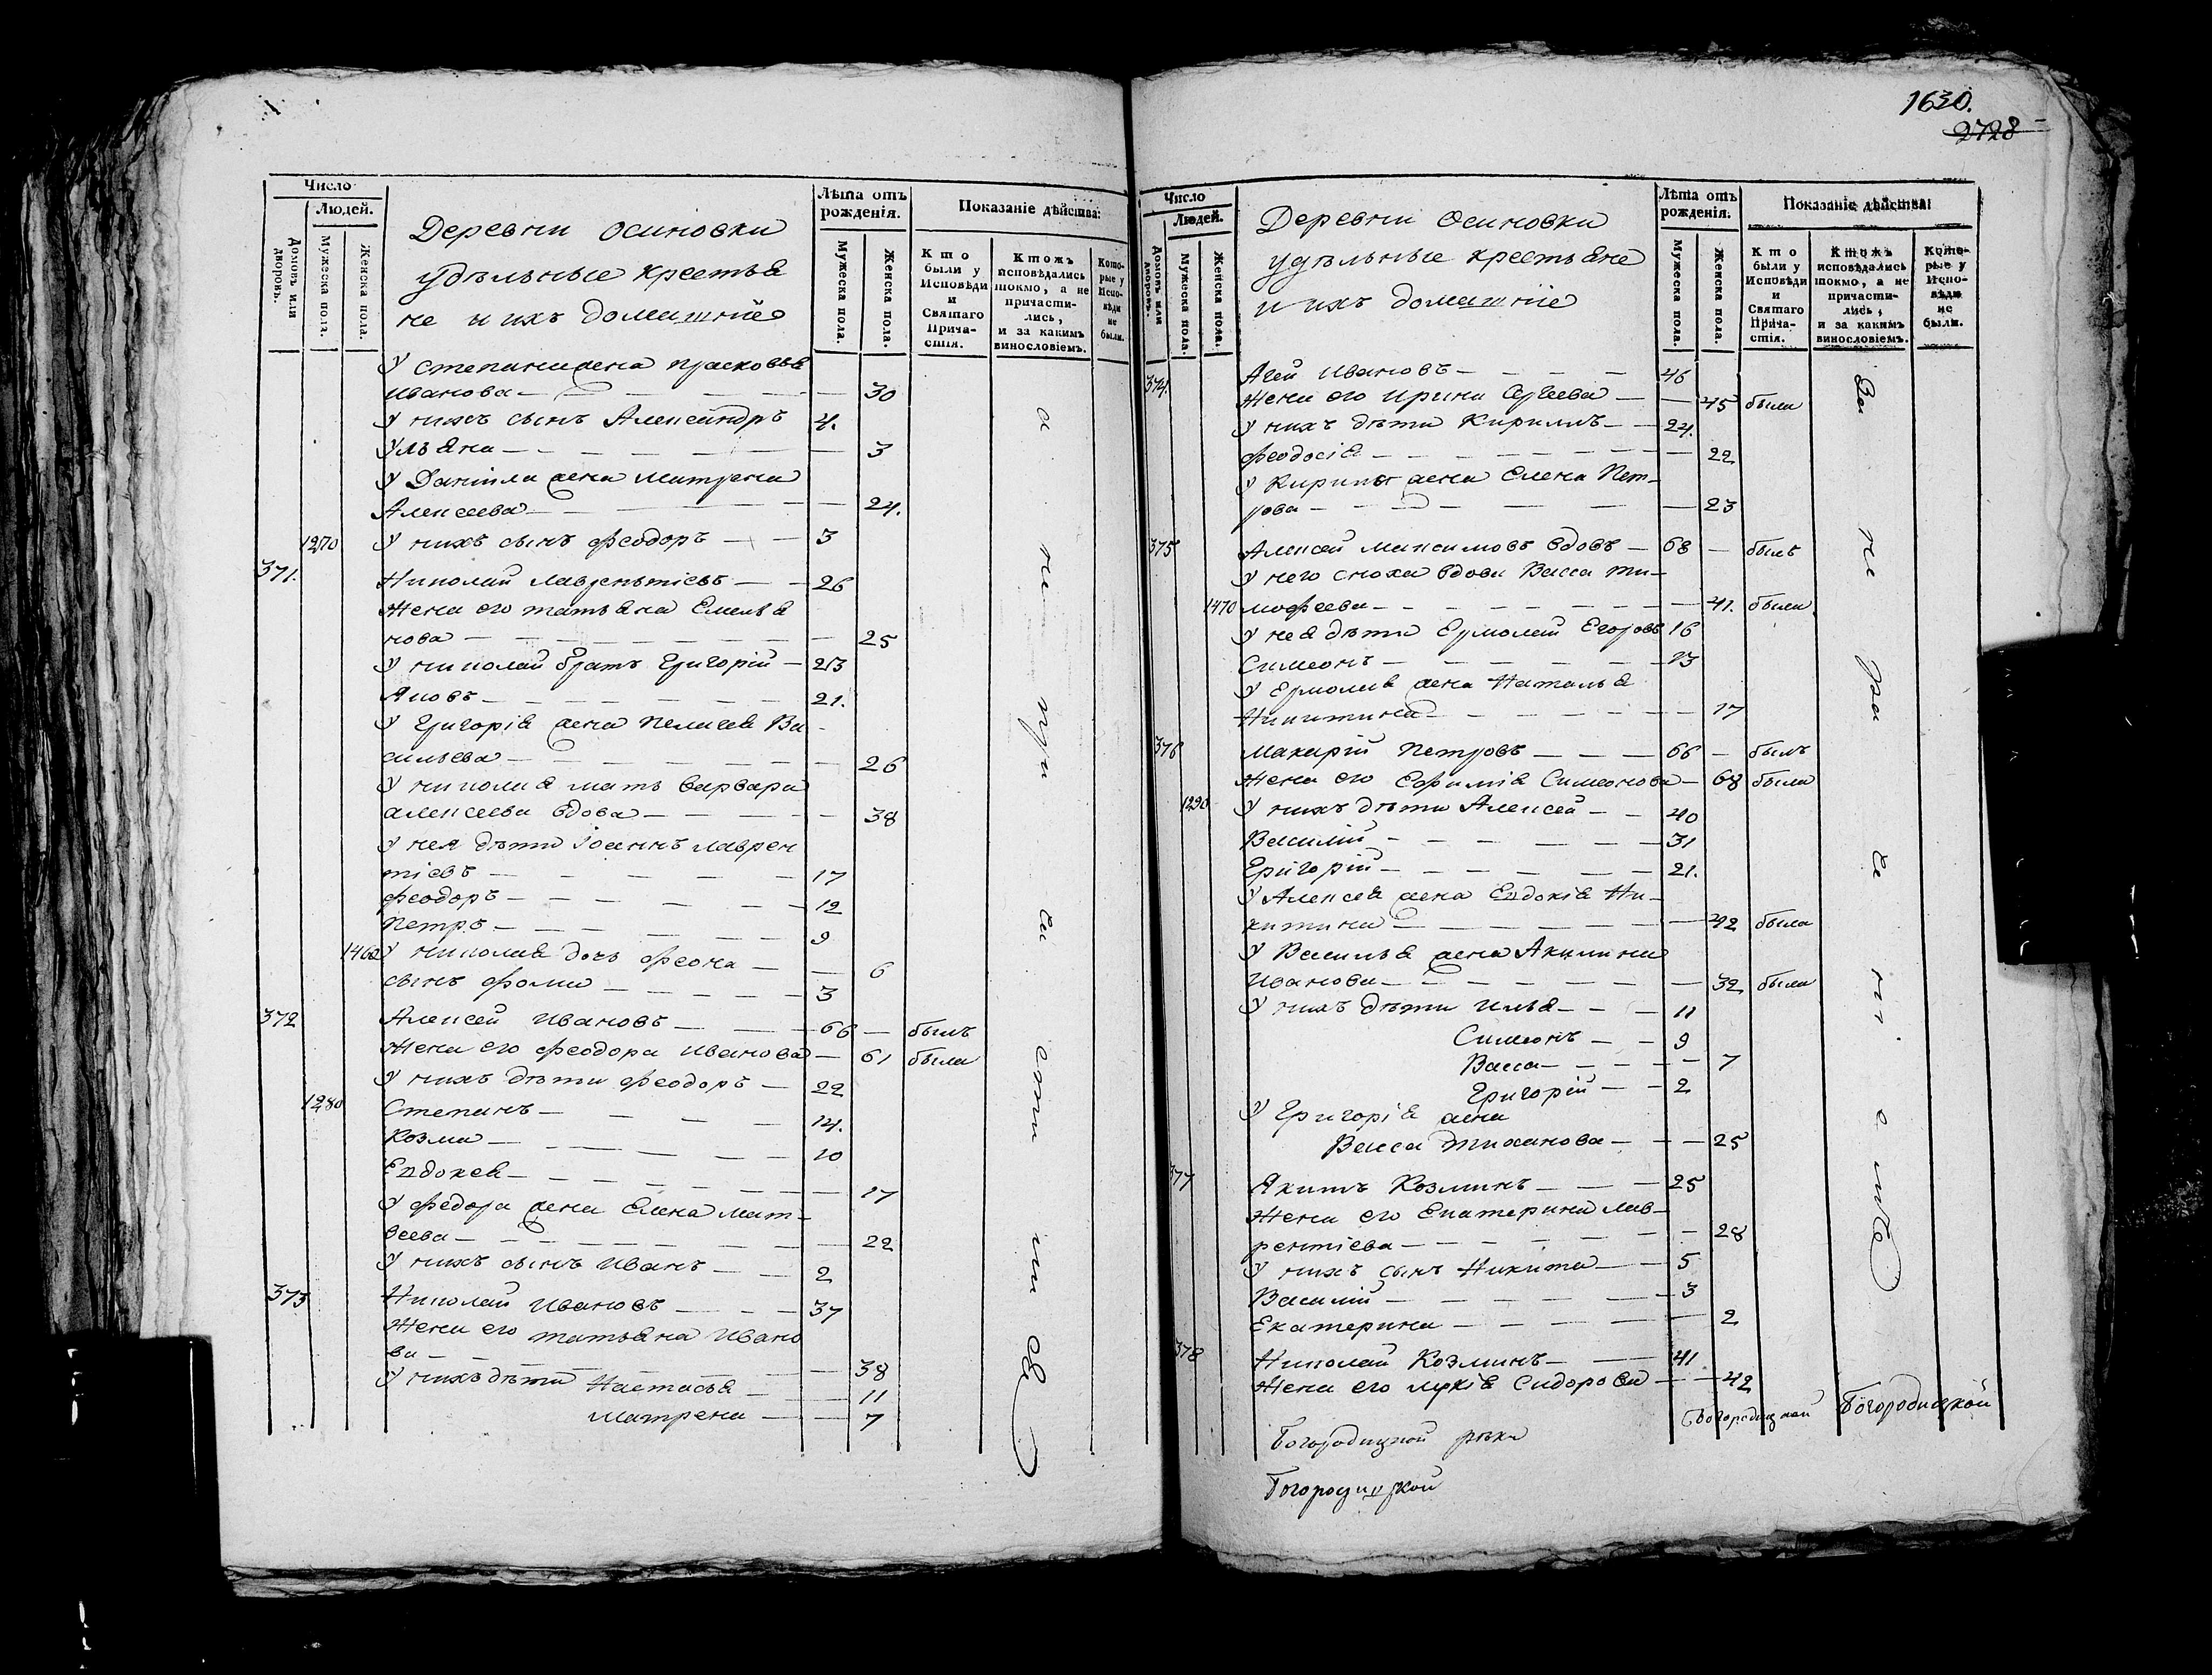 Число
Людей.
Домовъ или дворовъ.
Мужеска пола.
Женска пола.
Деревни Осиновки
удѣльные крестья
не и ихъ домашніе
Лѣта отъ рожденія.
Мужеска пола.
Женска пола.
Показаніе дѣйства:
Кто были у Исповѣди и Святаго Причастія.
Ктожъ исповѣдались токмо, а не причастились, и за какимъ винословіемъ.
Которые у Исповѣди не были.
У степана жена прасковья
Иванова — 30
У нихъ сынъ Александръ 4.
Ульяна — 3
У Даніила жена матрена
Алексеева — 24.
1270 У нихъ сынъ феодоръ — 3
371. Николай лаврентіевъ — 26
Жена его татьяна Емелья
нова — 25
У николая братъ Григорій — 23
Яковъ — 21.
У Григорія жена пелагея Ва
сильева — 26
У николая мать варвара
алексеева вдова — 38
У нея дѣти Іоаннъ лаврен
тіевъ — 17
феодоръ — 12
петръ — 9
1460 У николая дочь феона — 6
сынъ фома — 3
372 Алексей Ивановъ — 66 — былъ
Жена его феодора иванова — 61 была
У нихъ дѣти феодоръ — 22
1280 Степанъ — 14.
Козма — 10
Евдокея — 17
У федора жена Елена мат-
веева — 22
У нихъ сынъ Иванъ — 2
373 Николай Ивановъ — 37
Жена его татьяна Ивано
ва — 38
У нихъ дѣти Настасья — 11
матрена — 7
1630.
2728
Число
Людей.
Домовъ или дворовъ.
Мужеска пола.
Женска пола.
Деревни Осиновки
удѣльные крестьяне
и ихъ домашніе
Лѣта отъ рожденія.
Мужеска пола.
Женска пола.
Показаніе дѣйства:
Кто были у Исповѣди и Святаго Причастія.
Ктожъ исповѣдались токмо, а не причастились, и за какимъ винословіемъ.
Которые у Исповѣди не были.
374. Агей Ивановъ — 46
Жена его Ирина Сергеева — 45 была
У нихъ дѣти Кириллъ — 24.
феодосія — 22
У Кирилы жена Елена Пет-
рова — 23
375 Алексей максимовъ вдовъ — 68 — былъ
У него сноха вдова Васса ти-
1470 мофеева — 41. была
У нея дѣти Ермолай Егоровъ 16
Симеонъ — 13
У Ермолая жена Наталья
Никитина — 17
376 макарій Петровъ — 66 — былъ
Жена его Ефимія Симеонова — 68 была
1290 У нихъ дѣти Алексей — 40
Василій — 31
Григорій — 21.
У Алексея жена Евдокія Ни-
китина — 42 была
У Василья жена Акилина
Иванова — 32 была
У нихъ дѣти Илья — 11
Симеонъ — 9
Васса — 7
Григорій — 2
У Григорія жена
Васса — 25
377 Якимъ Козминъ — 25
Жена его Екатерина лав-
рентіева — 28
У нихъ сынъ Никита — 5
Василій — 3
Екатерина — 2
378 Николай Козминъ — 41
Жена его Сидорова — 42
Богородицкой Богородицкой
Богородицкой
Богородицкой